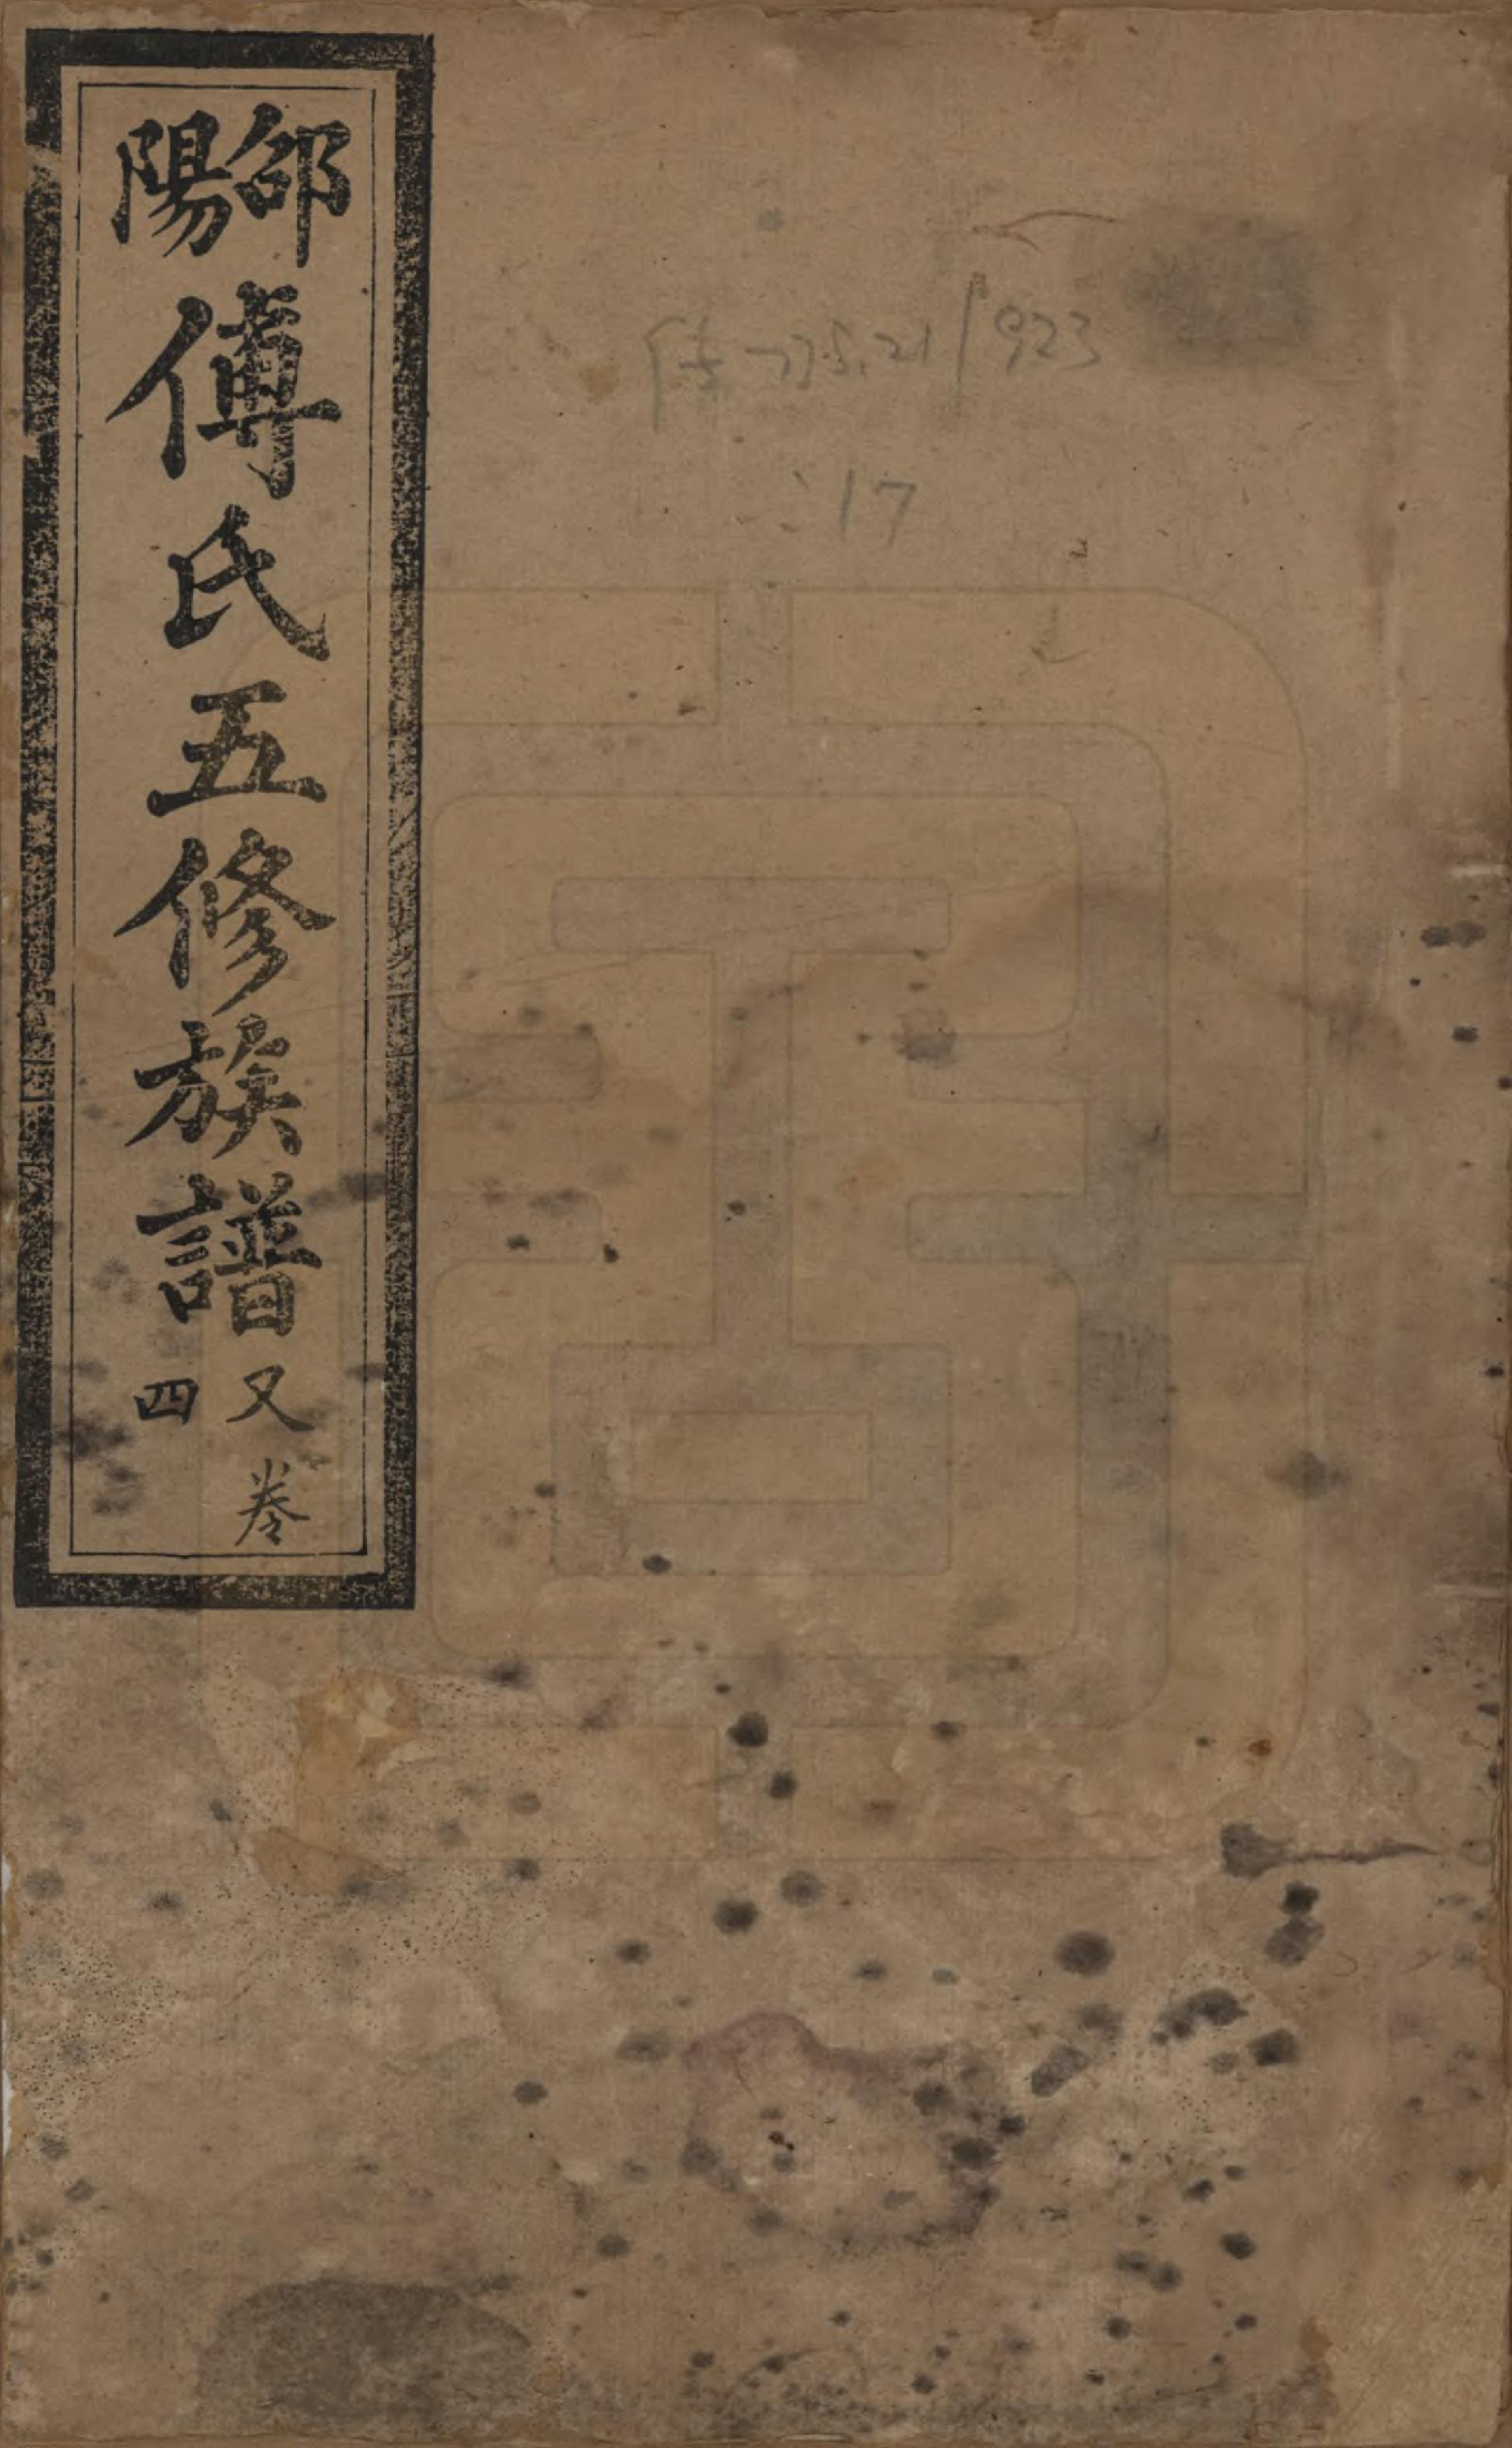 邵陽傅氏五修族譜又卷四
傳 775.21/923
:17